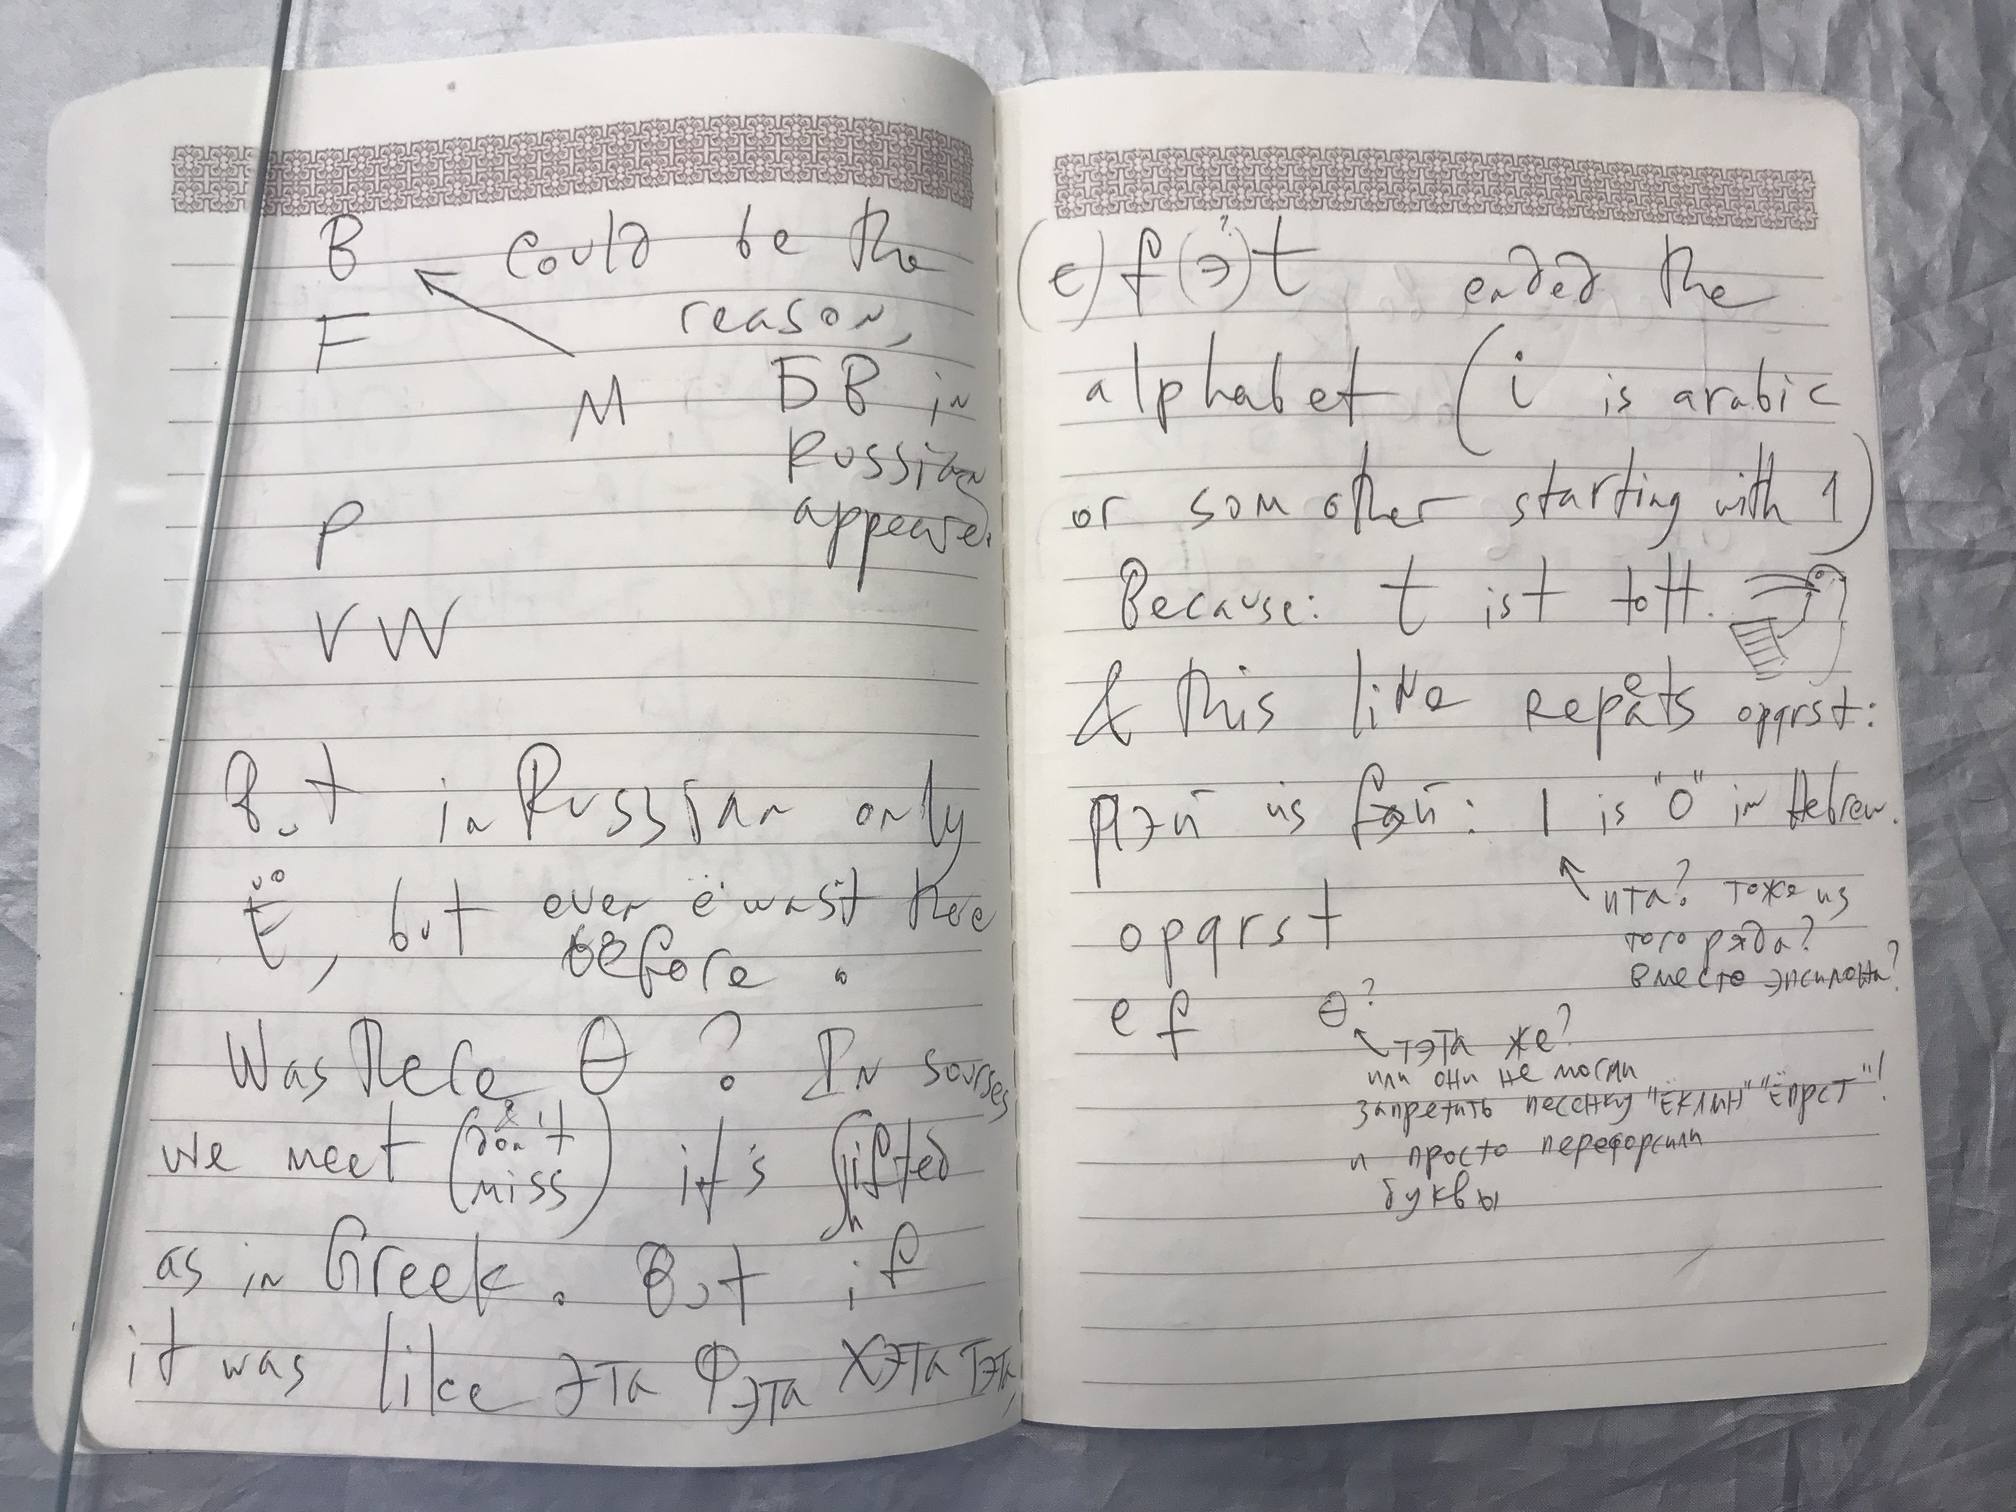 B could be the
F reason,
M БВ in
Russian
P appeared.
V W
But in Russian only
Ё, but even ё wasn't there
before.
Was there Θ? In sourses
we meet (& don't
miss) it's shifted
as in Greek. But if
it was like Эта Фэта Хэта Тэта,
(e) f (э?) t ended the
alphabet (i is arabic
or som other starting with 1)
Because: t ist tott.
& this line repeats opqrst:
рэй is fэй: 1 is "0" in Hebrew.
ита? тоже из
opqrst того ряда?
вместо эпсилона?
ef Θ?
тэта же?
или они не могли
запретить песенку "ЁКЛМН" "ЁПРСТ"!
и просто перефорсили
буквы